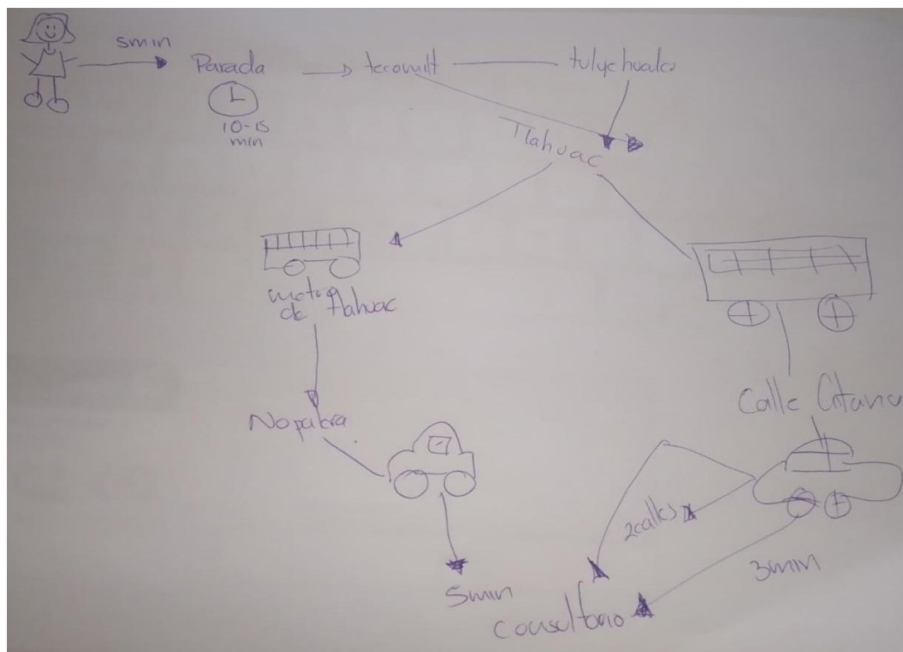 5min
Parada
10-15
min
tecomitl
tulyehualco
Tlahuac
metro
de tlahuac
Nopalera
Calle Gitana
2 calles
5min
3min
Consultorio